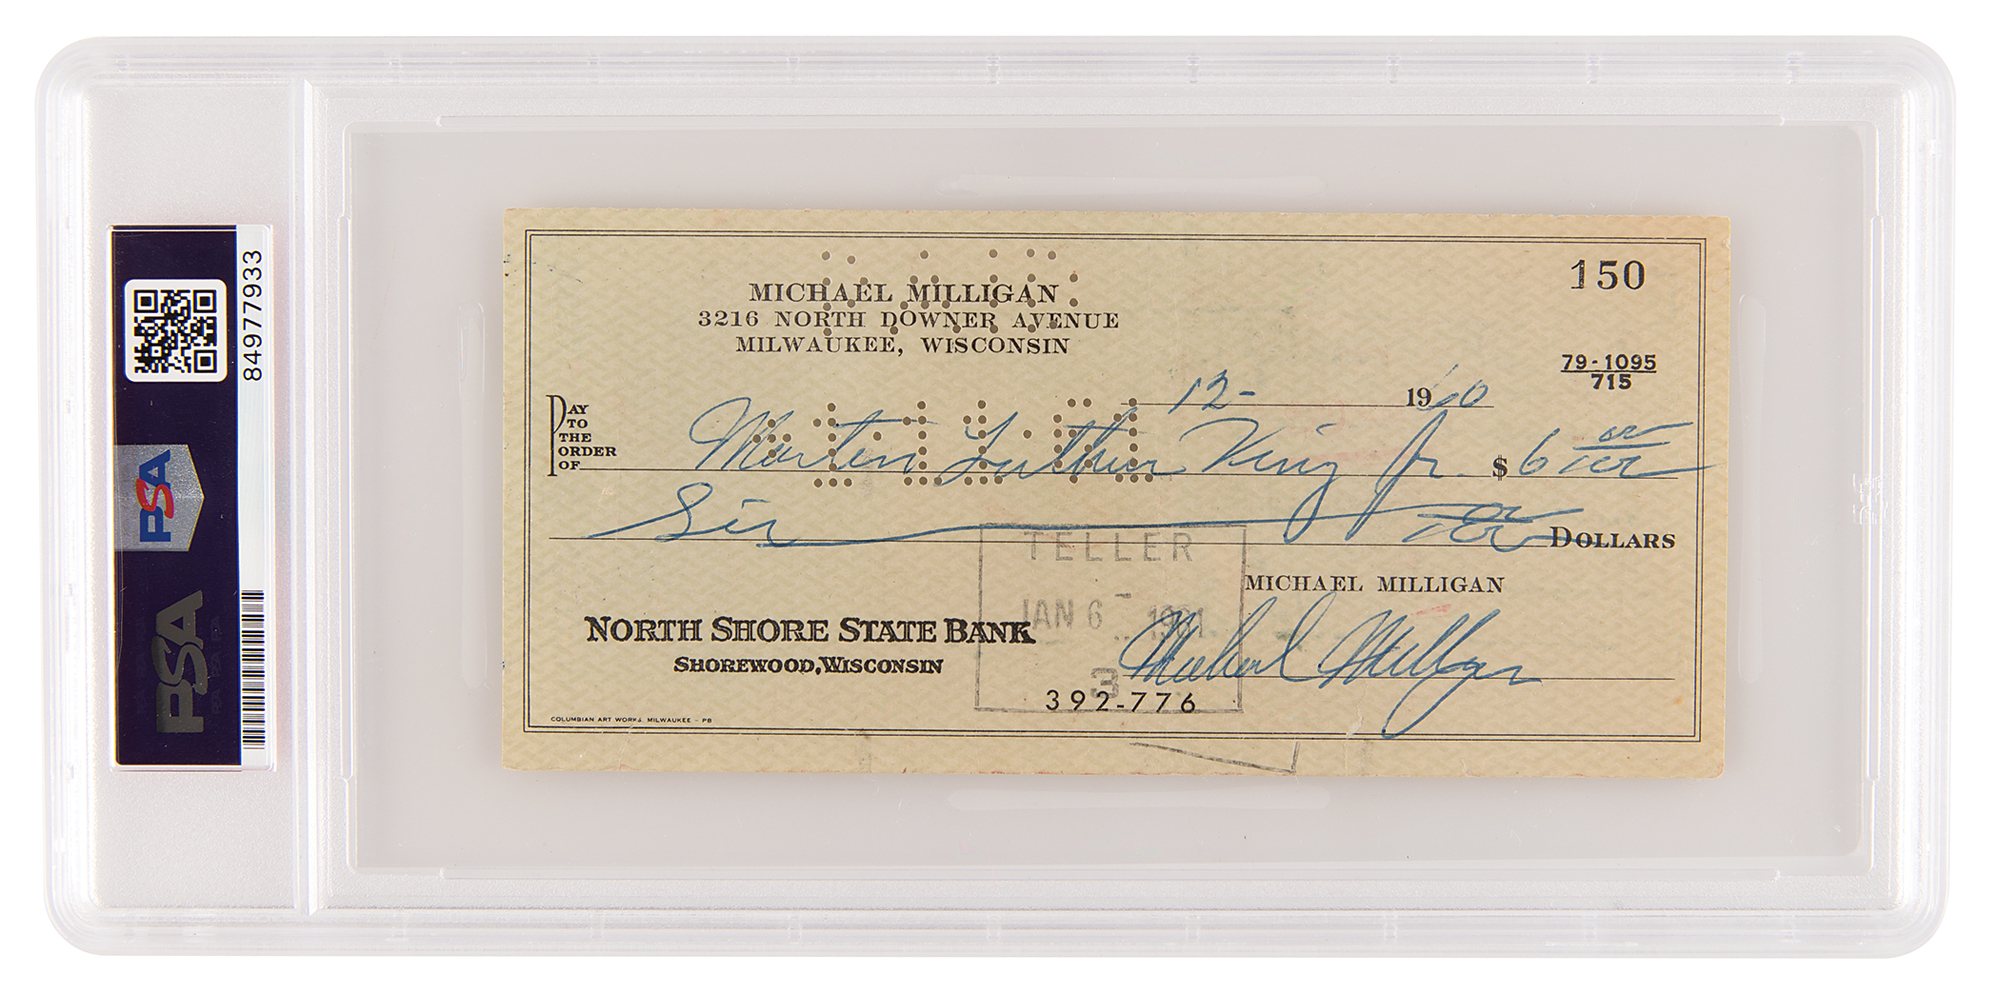 84977933
PSA
PSA
MICHAEL MILLIGAN
3216 NORTH DOWNER AVENUE
MILWAUKEE, WISCONSIN
150
79-1095
715
12- 1960
PAY TO THE ORDER OF Martin Luther King Jr. $ 6 00/100
Six 00/100 DOLLARS
TELLER
JAN 6 - 1961
3
MICHAEL MILLIGAN
NORTH SHORE STATE BANK
SHOREWOOD, WISCONSIN
Michael Milligan
392-776
COLUMBIAN ART WORKS MILWAUKEE - PB